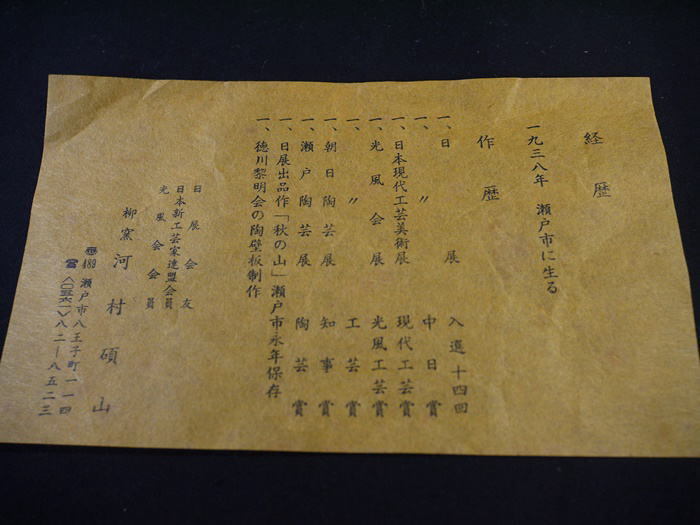 経歴
一九三八年 瀬戸市に生る
作歴
一、日展 入選十四回
一、〃 中日賞
一、日本現代工芸美術展 現代工芸賞
一、光風会展 光風工芸賞
一、〃 工芸賞
一、朝日陶芸展 知事賞
一、瀬戸陶芸展 陶芸賞
一、日展出品作「秋の山」瀬戸市永年保存
一、徳川黎明会の陶壁板制作
日展会友
日本新工芸家連盟会員
光風会会員
柳窯 河村碩山
〒489 瀬戸市八王子町一一四
☎〈〇五六一〉八二―八五二三